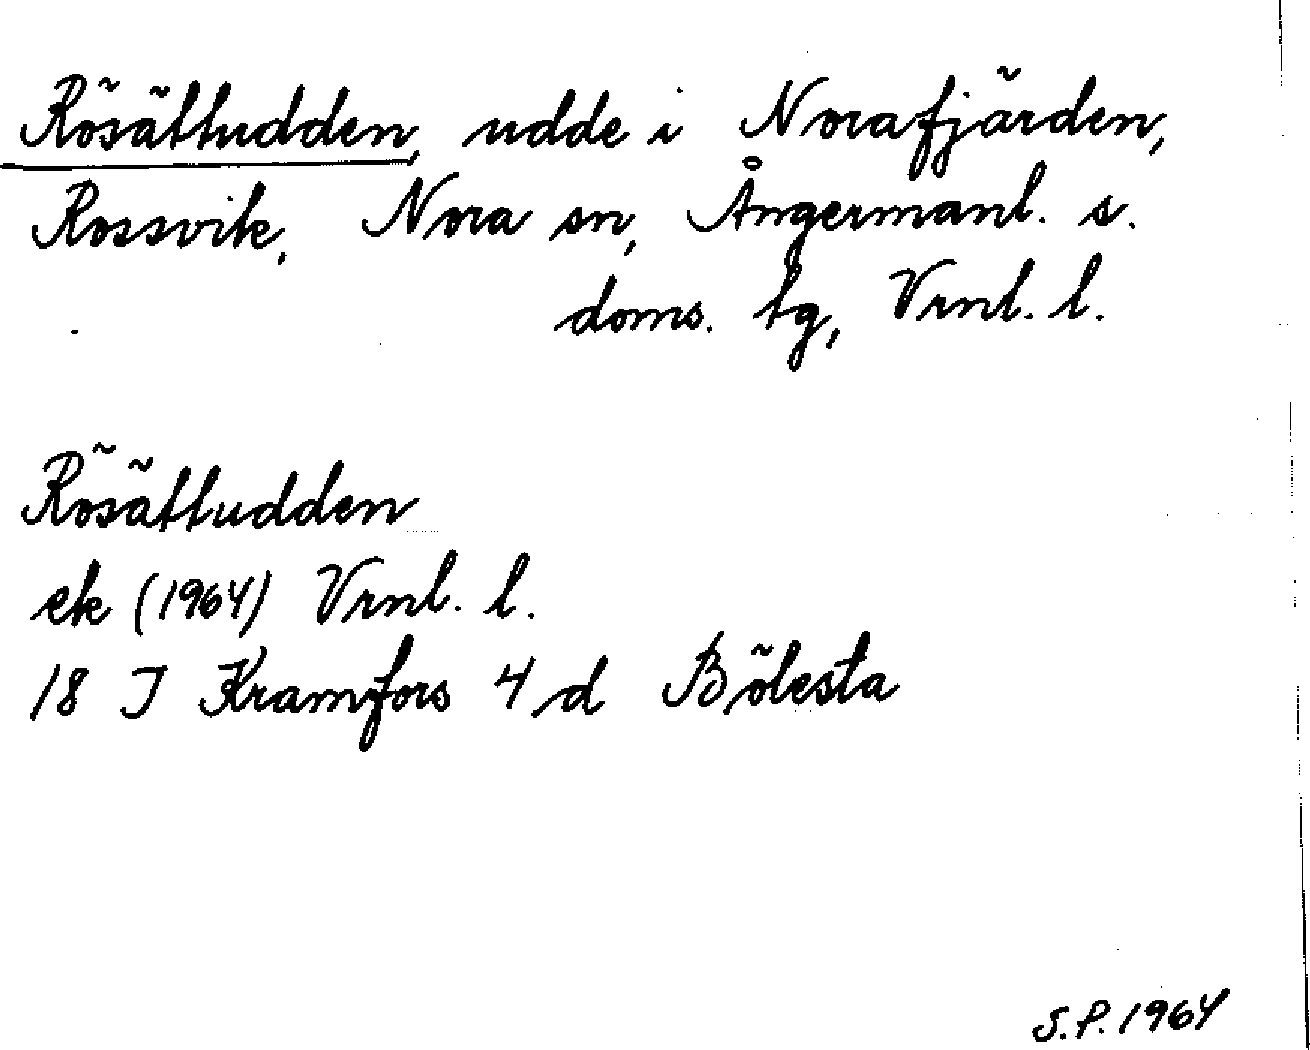 Rösättudden, udde i Norafjärden,
Rossvik, Nora sn, Ångermanl. s.
doms. tg, Vrnl. l.
Rösättudden
ek (1964) Vrnl. l.
18 J Kramfors 4 d Bölesta
S.P. 1964